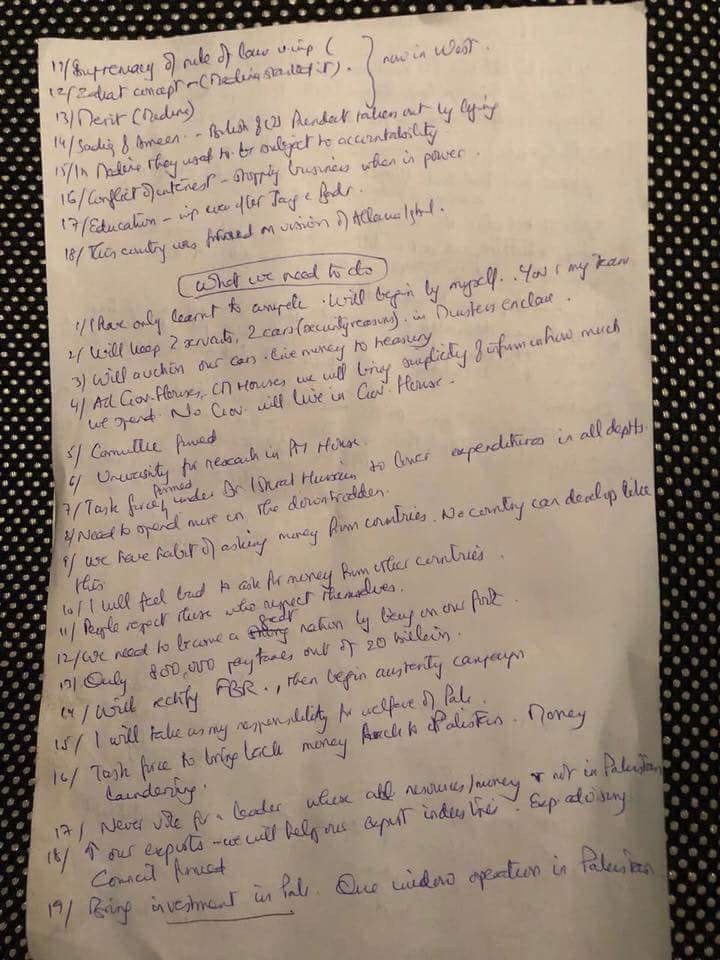 11/ Supremacy of rule of law - imp (
12/ Zakat concept - (Medina state did it). } now in West.
13) Merit (Medina)
14/ Sadiq & Ameen. - British & US President taken out by lying
15/ In Medina they used to be subject to accountability
16/ Conflict of interest - stopping business when in power.
17/ Education - imp even after Jang e Badr.
18/ This country was formed on vision of Allama Iqbal.
What we need to do
1/ I have only learnt to compete. Will begin by myself.. You & my team
2/ Will keep 2 servants, 2 cars (security reasons). in Ministers enclave.
3) Will auction our cars. Give money to treasury
4/ All Gov. Houses, CM Houses we will bring simplicity & inform on how much
we spend. No Gov. will live in Gov. House.
5/ Committee formed
6/ University for research in PM House.
7/ Task force formed under Dr Ishrat Hussain to lower expenditures in all depts.
8/ Need to spend more on the downtrodden.
9/ We have habit of asking money from countries. No country can develop like
this
10/ I will feel bad to ask for money from other countries.
11/ People respect those who respect themselves.
12/ We need to become a great nation by being on our feet
13) Only 800,000 pay taxes out of 20 million.
14/ Will rectify FBR., then begin austerity campaign
15/ I will take as my responsibility for welfare of Pak.
16/ Task force to bring back money back to Pakistan. Money
laundering.
17/ Never vote for a leader whose all resources/money not in Pakistan
18/ ↑ our exports - we will help our export industries. Exp advisory
Council formed
19/ Bring investment in Pak. One window operation in Pakistan